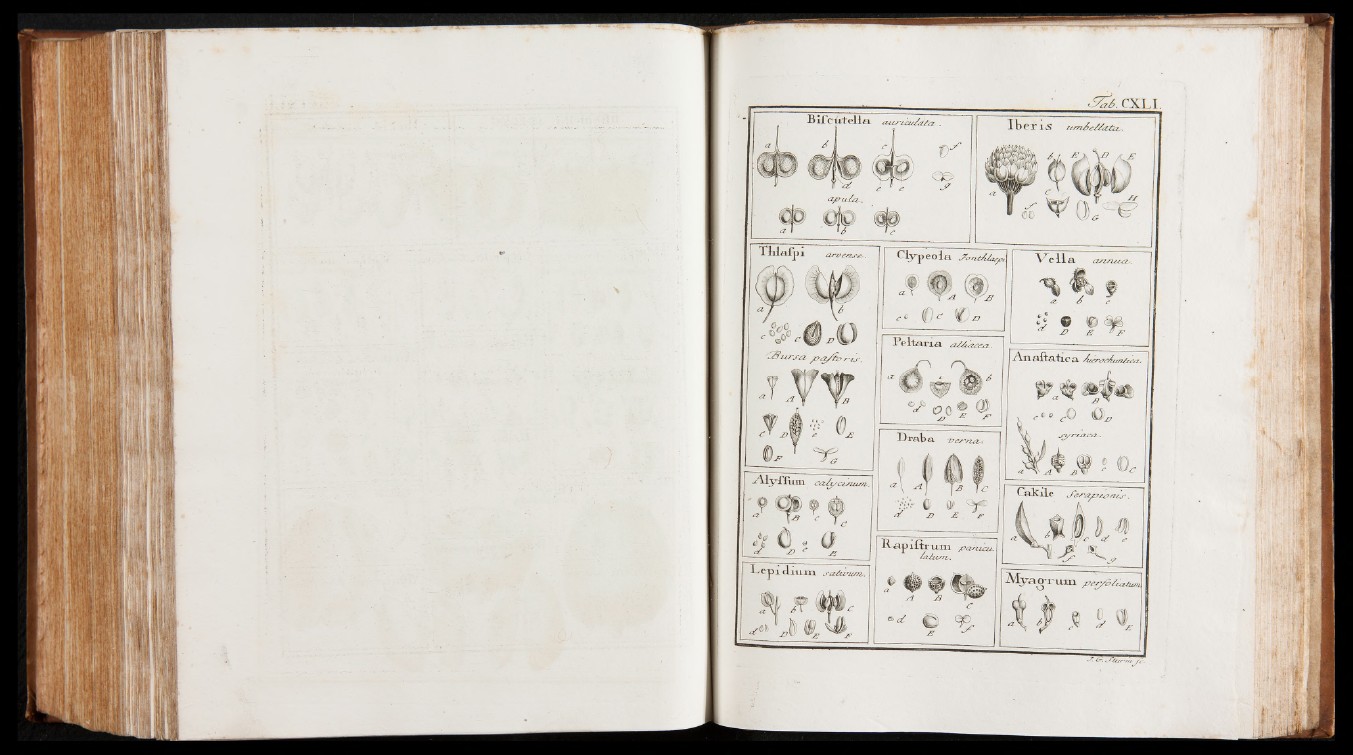 Tab. CXLI.
Biſcutella auriculata.
a b c f
d e e g
apula.
a b c
Iberis umbellata.
a b E D E
c f G H
Thlaſpi arvense.
a b
c c D
Bursa paſtoris.
a A B
c D e E
F G
Clypeola Jonthlaspi
a A B
c C D
Vella annua.
a b c
d D E F
Peltaria alliacea.
a b
d D E F
Anaſtatica hierochuntica.
a B
c C D
syriaca.
a A B c C
Draba verna.
a A B C
d D E F
Alyſſum calycinum.
a B c C
d D e E
Cakile Serapionis.
a b c d e
f g
Rapiſtrum panicu-
latum.
a A B C
d E f
Lepidium sativum.
a b c
d D E F
Myagrum perfoliatum.
a b c d E
J. G. Sturm sc.